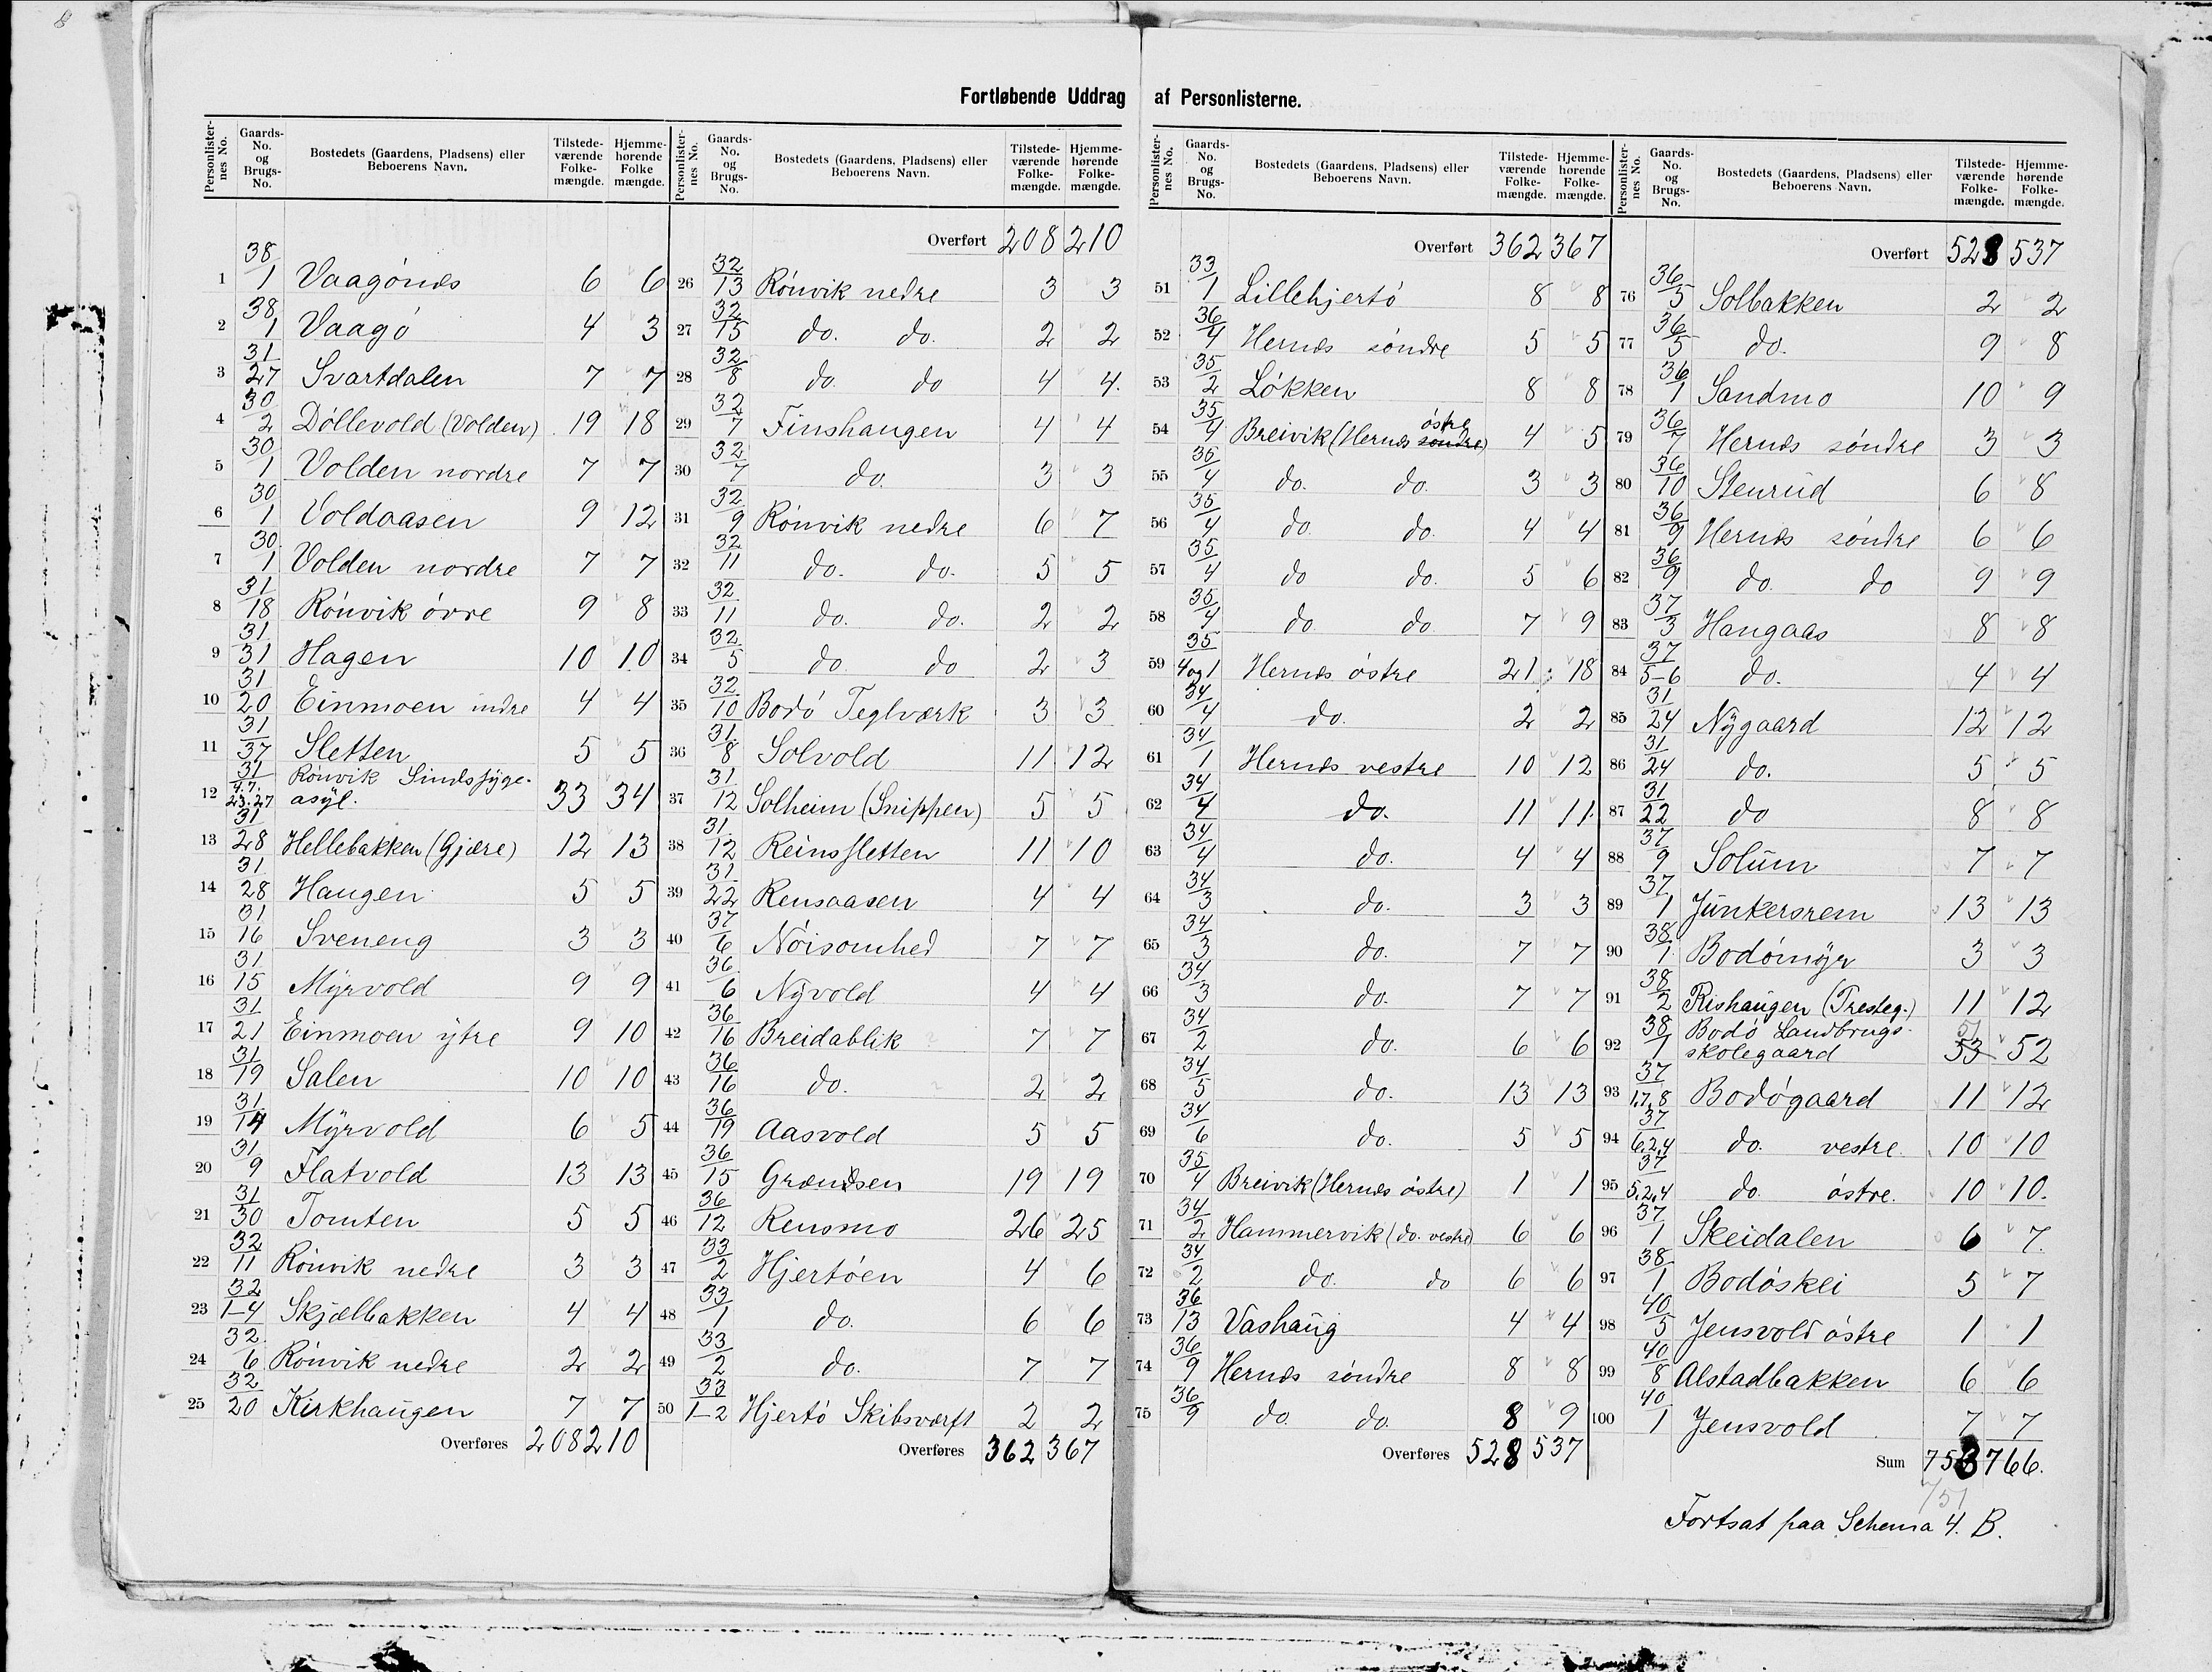 8
Fortløbende Uddrag af Personlisterne.
Personlister-nes No. Gaards-No. og Brugs-No. Bostedets (Gaardens, Pladsens) eller Beboerens Navn. Tilstede-værende Folke-mængde. Hjemme-hørende Folke mængde.
1 38/1 Vaagönæs 6 6
2 38/1 Vaagö 4 3
3 31/27 Svartdalen 7 7
4 30/2 Döllevold (Volden) 19 18
5 30/1 Volden nordre 7 7
6 30/1 Voldaasen 9 12
7 30/1 Volden nordre 7 7
8 31/18 Rönvik övre 9 8
9 31/31 Hagen 10 10
10 31/20 Einmoen indre 4 4
11 31/37 Sletten 5 5
12 31/4.7.23.27 Rönvik Sindssyge-
asyl. 33 34
13 31/28 Hellebakken (Gjære) 12 13
14 31/28 Haugen 5 5
15 31/16 Sveneng 3 3
16 31/15 Myrvold 9 9
17 31/21 Einmoen ytre 9 10
18 31/19 Salen 10 10
19 31/14 Myrvold 6 5
20 31/9 Flatvold 13 13
21 31/30 Tomten 5 5
22 32/11 Rönvik nedre 3 3
23 32/1-4 Skjælbakken 4 4
24 32/6 Rönvik nedre 2 2
25 32/20 Kirkhaugen 7 7
Overføres 208 210
Personlister-nes No. Gaards-No. og Brugs-No. Bostedets (Gaardens, Pladsens) eller Beboerens Navn. Tilstede-værende Folke-mængde. Hjemme-hørende Folke-mængde.
Overført 208 210
26 32/13 Rönvik nedre 3 3
27 32/15 do. do. 2 2
28 32/8 do do 4 4.
29 32/7 Finshaugen 4 4
30 32/7 do. 3 3
31 32/9 Rönvik nedre 6 7
32 32/11 do. do. 5 5
33 32/11 do. do. 2 2
34 32/5 do. do 2 3
35 32/10 Bodö Teglværk 3 3
36 31/8 Solvold 11 12
37 31/12 Solheim (Snippen) 5 5
38 31/12 Reinssletten 11 10
39 31/22 Rensaasen 4 4
40 37/6 Nöisomhed 7 7
41 36/6 Nyvold 4 4
42 36/16 Breidablik 7 7
43 36/16 do. 2 2
44 36/19 Aasvold 5 5
45 36/15 Grændsen 19 19
46 36/12 Rensmo 26 25
47 33/2 Hjertöen 4 6
48 33/1 do. 6 6
49 33/2 do. 7 7
50 33/1-2 Hjertö Skibsværft 2 2
Overføres 362 367
Personlister-nes No. Gaards-No. og Brugs-No. Bostedets (Gaardens, Pladsens) eller Beboerens Navn. Tilstede-værende Folke-mængde. Hjemme-hørende Folke-mængde.
Overført 362 367
51 33/1 Lillehjertö 8 8
52 36/4 Hernæs söndre 5 5
53 35/2 Lökken 8 8
54 35/4 Breivik (Hernæs söndre östre) 4 5
55 35/4 do. do. 3 3
56 35/4 do. do. 4 4
57 35/4 do do. 5 6
58 35/4 do. do 7 9
59 35/4 og 1 Hernæs östre 21 18
60 34/4 do. 2 2
61 34/1 Hernæs vestre 10 12
62 34/4 do. 11 11
63 34/4 do. 4 4
64 34/3 do. 3 3
65 34/3 do. 7 7
66 34/3 do. 7 7
67 34/2 do. 6 6
68 34/5 do. 13 13
69 34/6 do. 5 5
70 35/4 Breivik (Hernæs östre) 1 1
71 34/2 Hammervik (do. vestre) 6 6
72 34/2 do. do 6 6
73 36/13 Vashaug 4 4
74 36/9 Hernæs söndre 8 8
75 36/9 do. do. 8 9
Overføres 528 537
Personlister-nes No. Gaards-No. og Brugs-No. Bostedets (Gaardens, Pladsens) eller Beboerens Navn. Tilstede-værende Folke-mængde. Hjemme-hørende Folke-mængde.
Overført 528 537
76 36/5 Solbakken 2 2
77 36/5 do. 9 8
78 36/1 Sandmo 10 9
79 36/7 Hernæs söndre 3 3
80 36/10 Stenrud 6 8
81 36/9 Hernæs söndre 6 6
82 36/9 do. do 9 9
83 37/3 Haugaas 8 8
84 37/5-6 do. 4 4
85 31/24 Nygaard 12 12
86 31/24 do. 5 5
87 31/22 do 8 8
88 37/9 Solum 7 7
89 37/1 Junkersrem 13 13
90 38/1 Bodömyr 3 3
91 38/2 Rishaugen (Tresteg.) 11 12
92 38/1 Bodö Landbrugs-
skolegaard 53 51 52
93 37/1,7,8 Bodögaard 11 12
94 37/6,2,4 do. vestre 10 10
95 37/5,2,4 do. östre. 10 10.
96 37/1 Skeidalen 6 7.
97 38/1 Bodöskei 5 7
98 40/5 Jensvold östre 1 1
99 40/8 Alstadbakken 6 6
100 40/1 Jensvold 7 7
Sum 753 766.
751
Fortsat paa Schema 4. B.